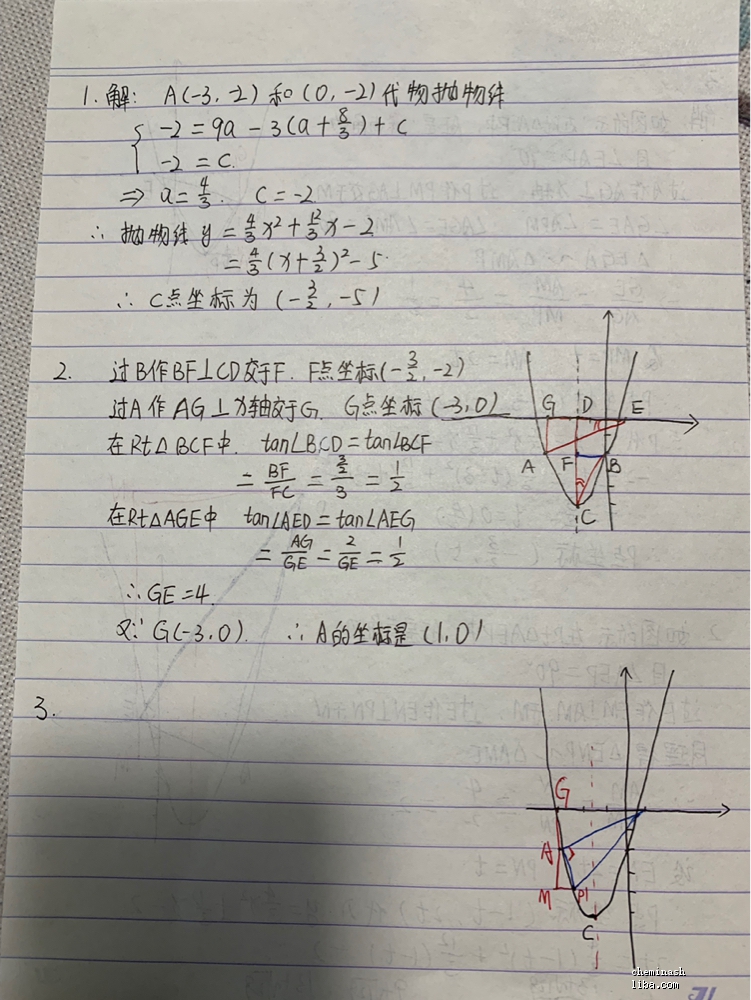 1.解: A(-3,-2) 和 (0,-2) 代物抛物线
-2=9a-3(a+8/3)+c
-2=c.
⇒ a=4/3. c=-2
∴ 抛物线 y=4/3x²+12/3x-2
=4/3(x+3/2)²-5
∴ C点坐标为 (-3/2,-5)
2. 过B作BF⊥CD交于F. F点坐标(-3/2,-2)
过A作AG⊥x轴交于G. G点坐标(-3,0)
在Rt△BCF中. tan∠BCD=tan∠BCF
=BF/FC=3/2/3=1/2
在Rt△AGE中 tan∠AED=tan∠AEG
=AG/GE=2/GE=1/2
∴GE=4.
又∵G(-3,0). ∴A的坐标是(1,0)
G D E
A F B
C
3.
G
A
M P1
C
cheminash
liba.com